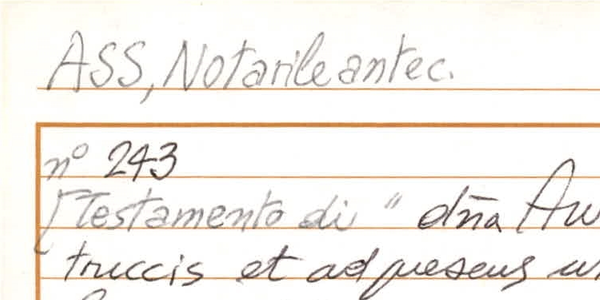 ASS, Notarile antec.
n° 243
[Testamento di " dña Au
truccis et ad presens